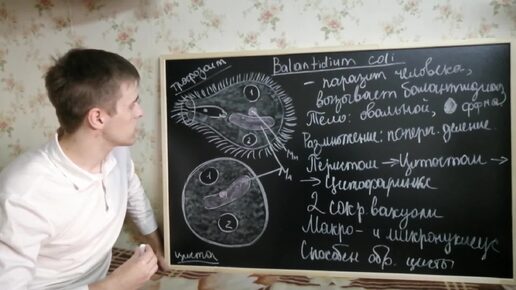 Balantidium coli
Трофозоит
- паразит человека,
вызывает балантидиаз
Тело: овальной, ф-рмы
Размножение: попереч. деление.
Перистом → Цитостом →
→ Цитофаринкс
2 сокр. вакуоли
Макро- и микронуклеус
Способен обр. цисты
1
2
Ма
Ми
1
2
циста